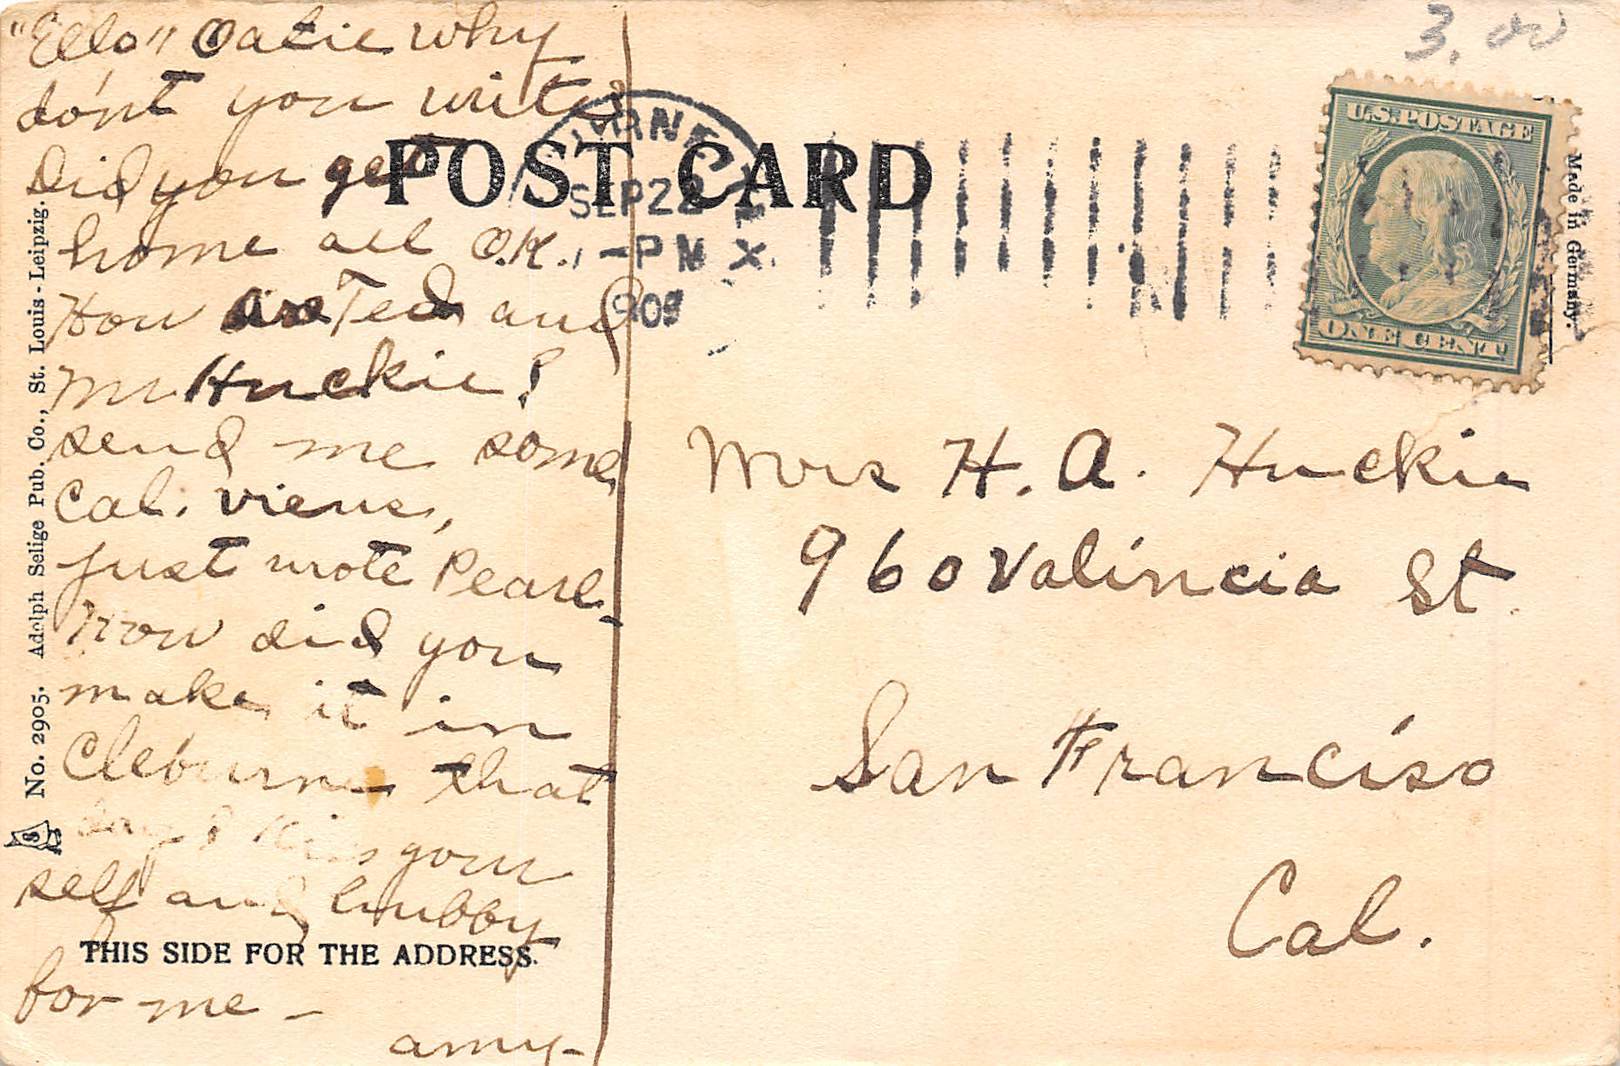 "Ello" Oatie why
don't you write?
Did you get
home all O.K.,
How are Ted and
Mr Huckie?
send me some
Cal. views,
just wrote Pearl-
How did you
make it in
Cleburne that
day? Kiss your
self and hubby
for me -
amy-
POST CARD
SEP 22
1-PM
X.
1909
3.00
U.S. POSTAGE
ONE CENT
Made in Germany.
Mrs H. A. Huckie
960 Valincia St.
San Franciso
Cal.
No. 2905. Adolph Selige Pub. Co., St. Louis - Leipzig.
S
THIS SIDE FOR THE ADDRESS.